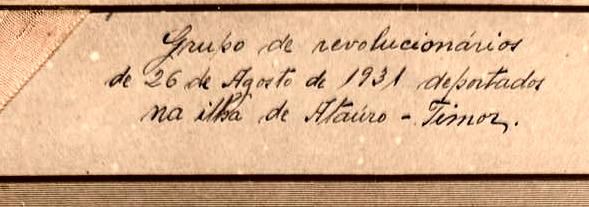 Grupo de revolucionários
de 26 de Agosto de 1931 deportados
na ilha de Ataúro - Timor.